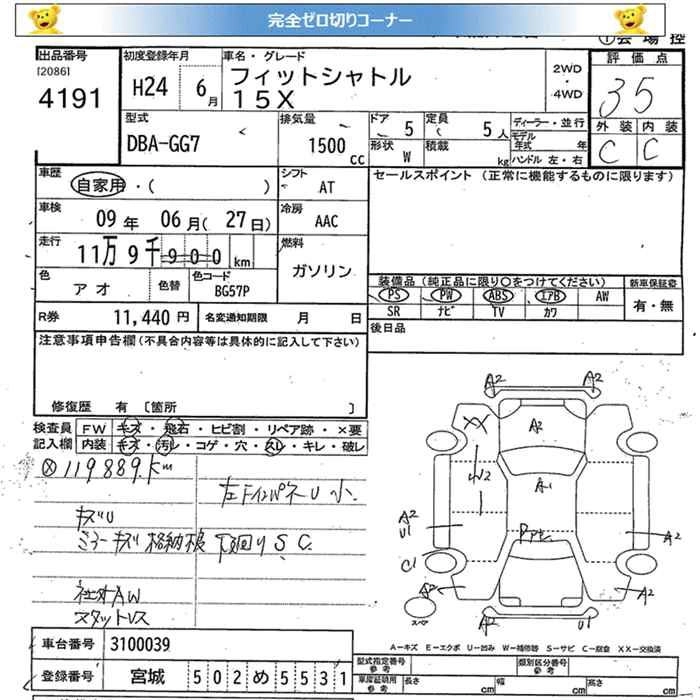 完全ゼロ切りコーナー
出品番号
[2086]
4191
初度登録年月
H24 6月
車名・グレード
フィットシャトル
15X
2WD
・
4WD
評価点
35
外装 内装
C C
型式
DBA-GG7
排気量
1500cc
ドア 5
定員 5人
形状 W
積載 kg
ディーラー・並行
モデル年式 年
ハンドル 左・右
車歴
自家用・( )
シフト
AT
セールスポイント (正常に機能するものに限ります)
車検
09年 06月(27日)
冷房
AAC
走行
11万9千900km
燃料
ガソリン
色
アオ
色替
色コード
BG57P
装備品 (純正品に限り○をつけてください)
PS PW ABS エアB AW
SR ナビ TV カワ
新車保証書
有・無
R券 11,440円
名変通知期限 月 日
後日品
注意事項申告欄 (不具合内容等は具体的に記入して下さい)
修復歴 有 [箇所 ]
検査員記入欄
FW キズ・飛石・ヒビ割・リペア跡・×要
内装 キズ・汚レ・コゲ・穴・スレ・キレ・破レ
119889km
左
U小
キズU
ミラーキズ 格納
下廻りS.C.
社外AW
スタットレス
A2 A2
XX A2
W2
A1
A2
U1
A2
C1
A2 A2
A2 U1
スペア
A−キズ E−エクボ U−凹み W−補修跡 S−サビ C−腐食 XX−交換済
車台番号 3100039
登録番号 宮城 502め5531
型式指定番号 参考
類別区分番号 参考
車庫証明用 参考
長さ cm
幅 cm
高さ cm